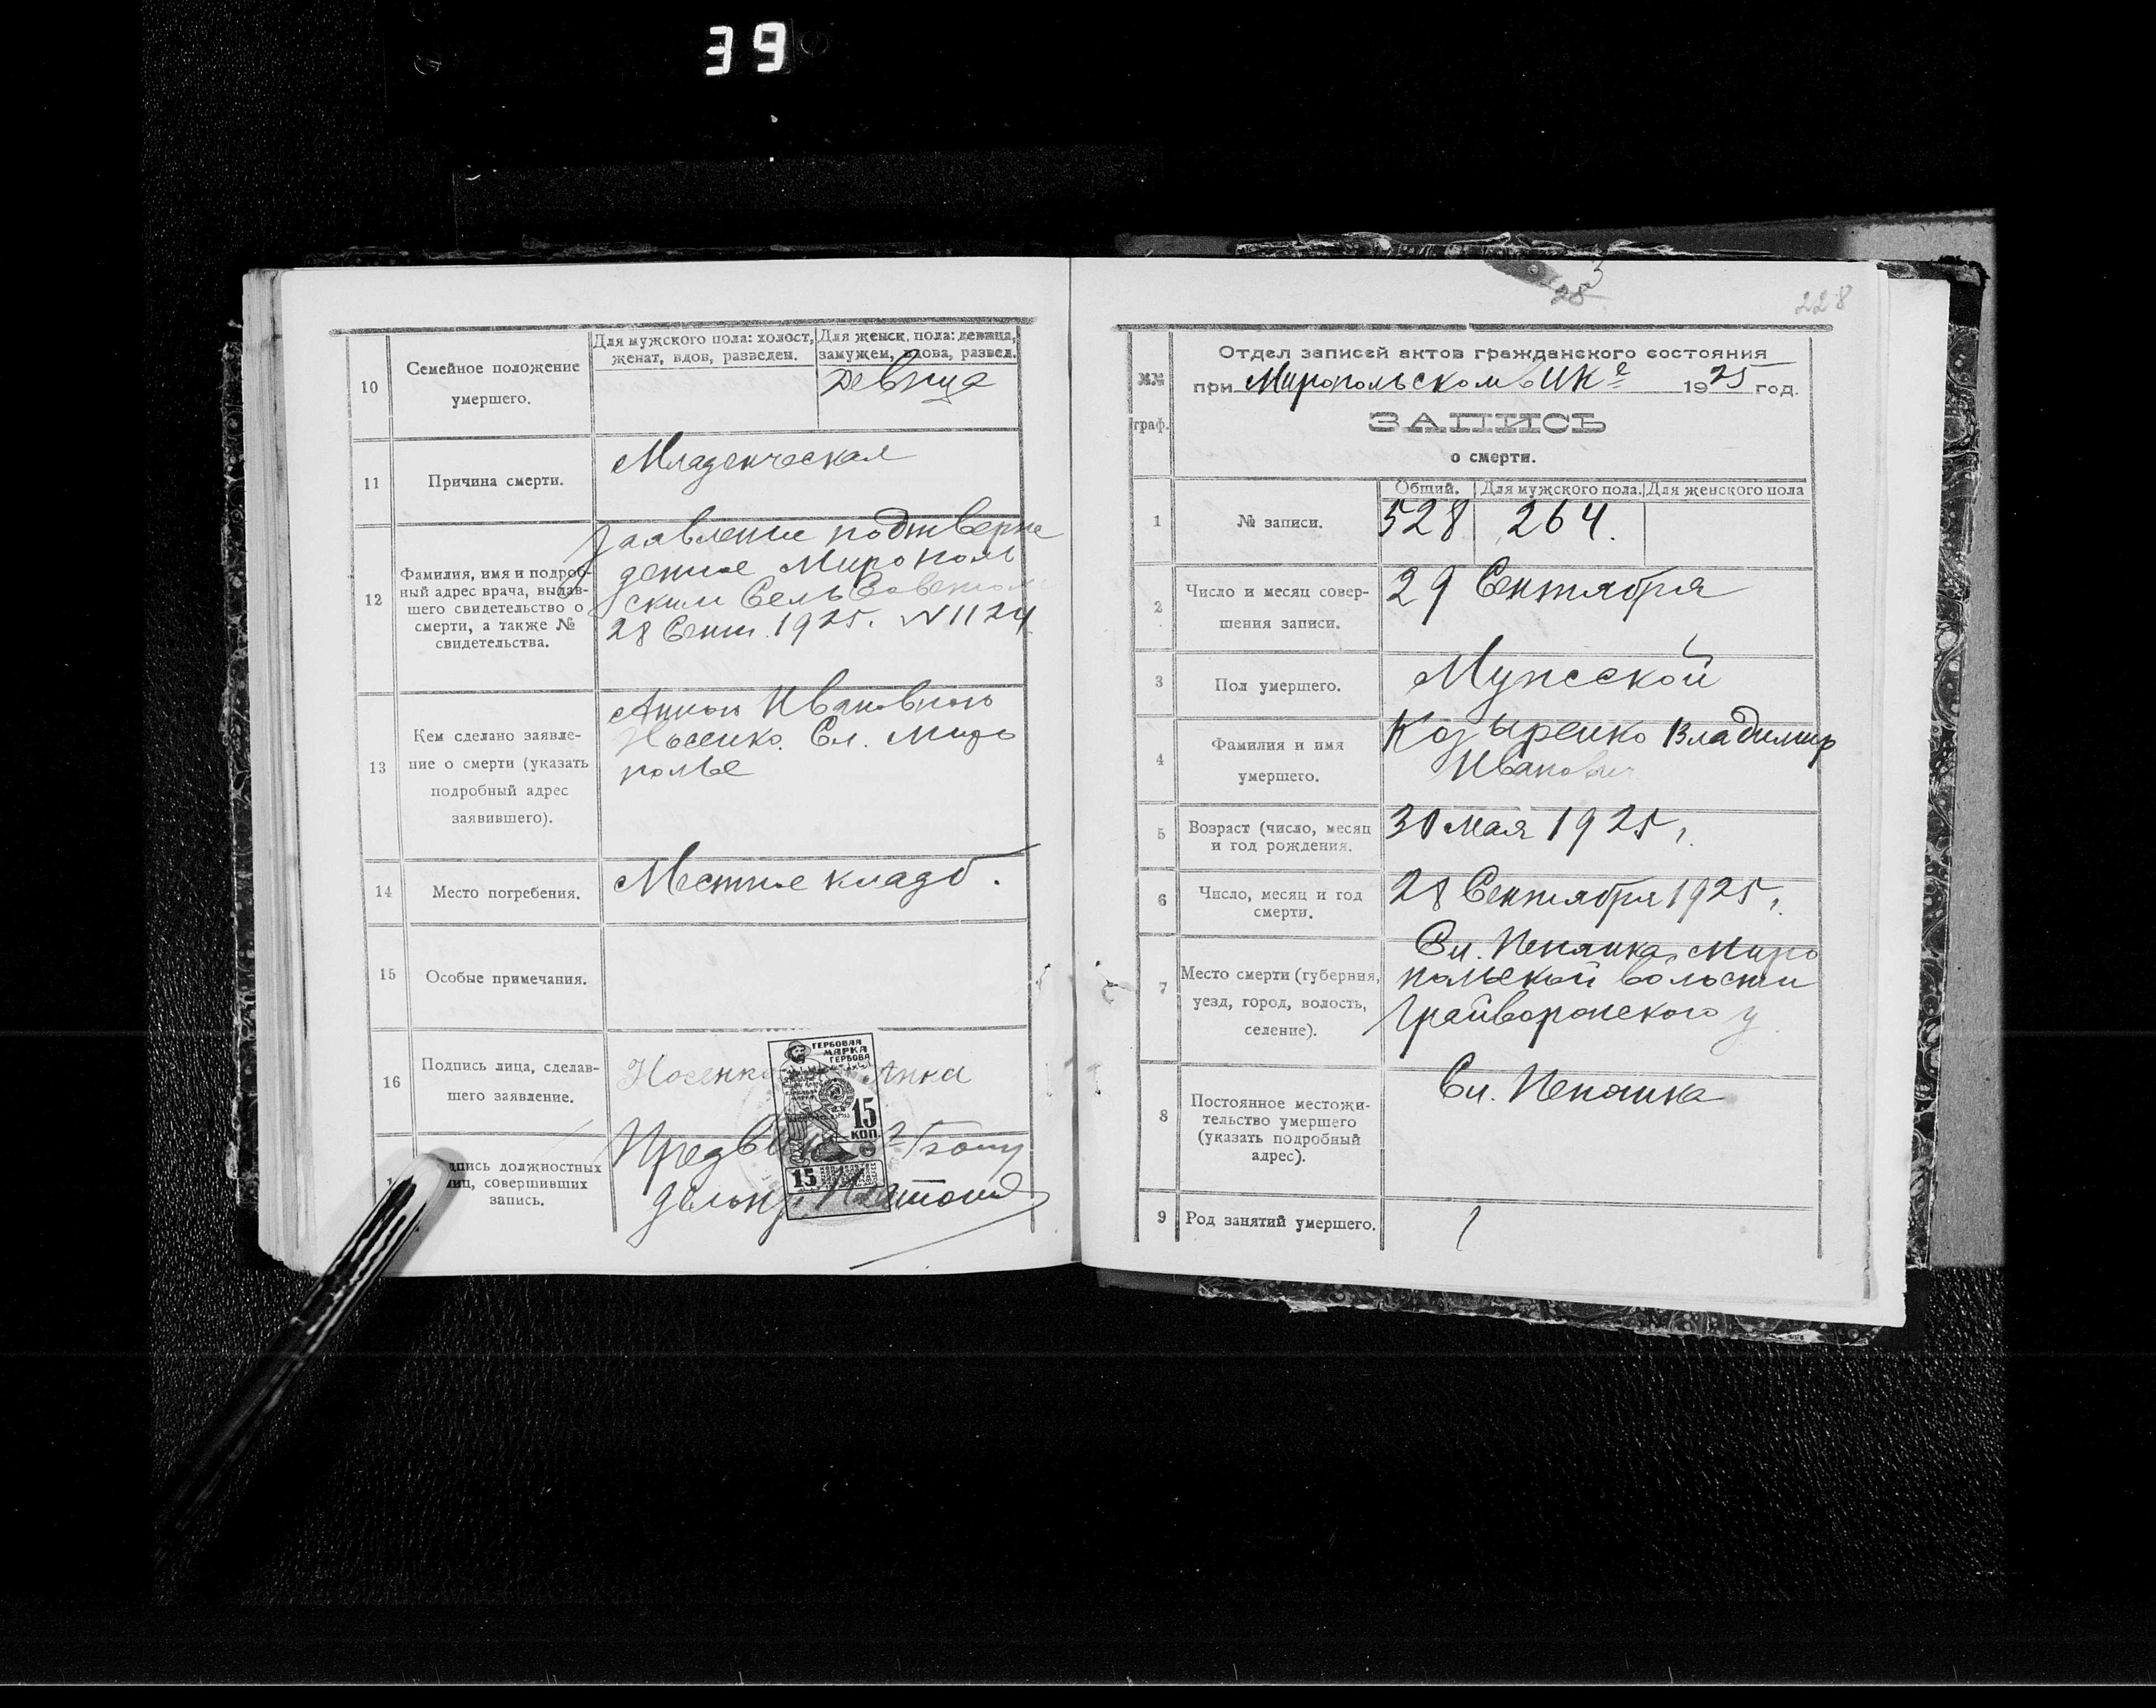 39
10
Семейное положение
умершего.
Для мужского пола: холост,
женат, вдов, разведен.
Для женск. пола: девица,
замужем, вдова, развед.
Девица
11
Причина смерти.
Младенческая
12
Фамилия, имя и подроб-
ный адрес врача, выдав-
шего свидетельство о
смерти, а также №
свидетельства.
Заявление подтверж
дение Мирополь
ским СельСоветом
28 Сент. 1925. N 1124
13
Кем сделано заявле-
ние о смерти (указать
подробный адрес
заявившего).
Анною Ивановною
Носенко. Сл. Миро
полье
14
Место погребения.
Местное кладб.
15
Особые примечания.
16
Подпись лица, сделав-
шего заявление.
Носенко Анна
ГЕРБОВАЯ
МАРКА
ГЕРБОВА
15
КОП.
15
дпись должностных
лиц, совершивших
запись.
Пред
3
28
228
№№
граф.
Отдел записей актов гражданского состояния
при Миропольском вИКе 1925 год.
ЗАПИСЬ
о смерти.
1
№ записи.
Общий. Для мужского пола. Для женского пола
528 264.
2
Число и месяц совер-
шения записи.
29 Сентября
3
Пол умершего.
Мужской
4
Фамилия и имя
умершего.
Козыренко Владимир
Иванович
5
Возраст (число, месяц
и год рождения.
30 Мая 1925 г.
6
Число, месяц и год
смерти.
28 Сентября 1925 г.
7
Место смерти (губерния,
уезд, город, волость,
селение).
Сл. Пенянка Миро
польской волости
Грайворонского у
8
Постоянное местожи-
тельство умершего
(указать подробный
адрес).
Сл. Пенянка
9
Род занятий умершего.